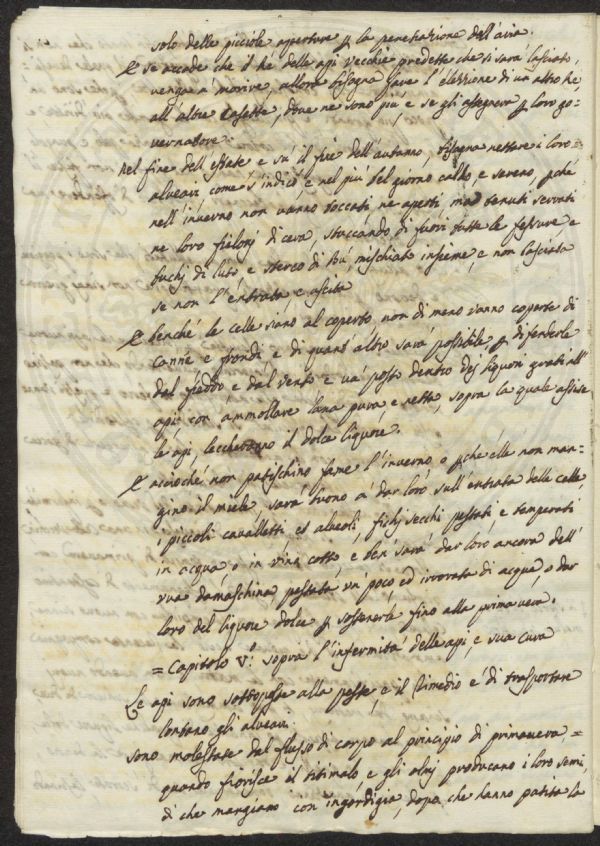 solo delle picciole aperture p la penetrazione dell'aria.
E se accade che il Ré delle api vecchie predette che si sarà lasciato,
venga a morire, allora bisogna fare l'elezzione di un altro Ré,
all'altre casette, dove ne sono più, e se gli assegnera p loro go-
vernatore.
Nel fine dell'estate e sù il fine dell'autunno, bisogna nettare i loro=
alveari come s'indicò e nel più del giorno caldo, e sereno, pche
nell'inverno non vanno toccati, ne aperti, mà tenuti serrati
ne loro fieloni di cera, stuccando di fuori tutte le fessure e
buchj di luto e sterco di bu, mischiato insieme, e non lasciata
se non l'entrata, e uscita
E benché le celle siano al coperto, non di meno vanno coperte di
canne e frondi e di quant'altro sara possibile, p difenderle
dal freddo e dal vento e và posto dentro dei liquori grati all'
api, con ammollare lana pura e netta, sopra la quale assise
le api, leccheranno il dolce liquore.
E accioché non patischino fame l'inverno, o pche elle non man=
gino il miele, sarà buono à dar loro sull'entrata delle celle
i piccoli cavalletti et alveoli, fichj secchi pestati e temperati
in acqua, o in vino cotto, e ben sarà dar loro ancora dell'
uva damaschina pestata un poco ed irrorata di acqua, o dar
loro del liquore dolce p sostenerle fino alla primavera.
= Capitolo V: sopra l'infermità delle api, e sua cura
Le api sono sottoposte alla peste, e il Rimedio e di trasportare
lontano gli alveari.
Sono molestate dal flusso di corpo al principio di primavera, =
quando fiorisce il titimalo, e gli olmj producano i loro semi,
di che mangiano con ingordigia, dopo che hanno patita la